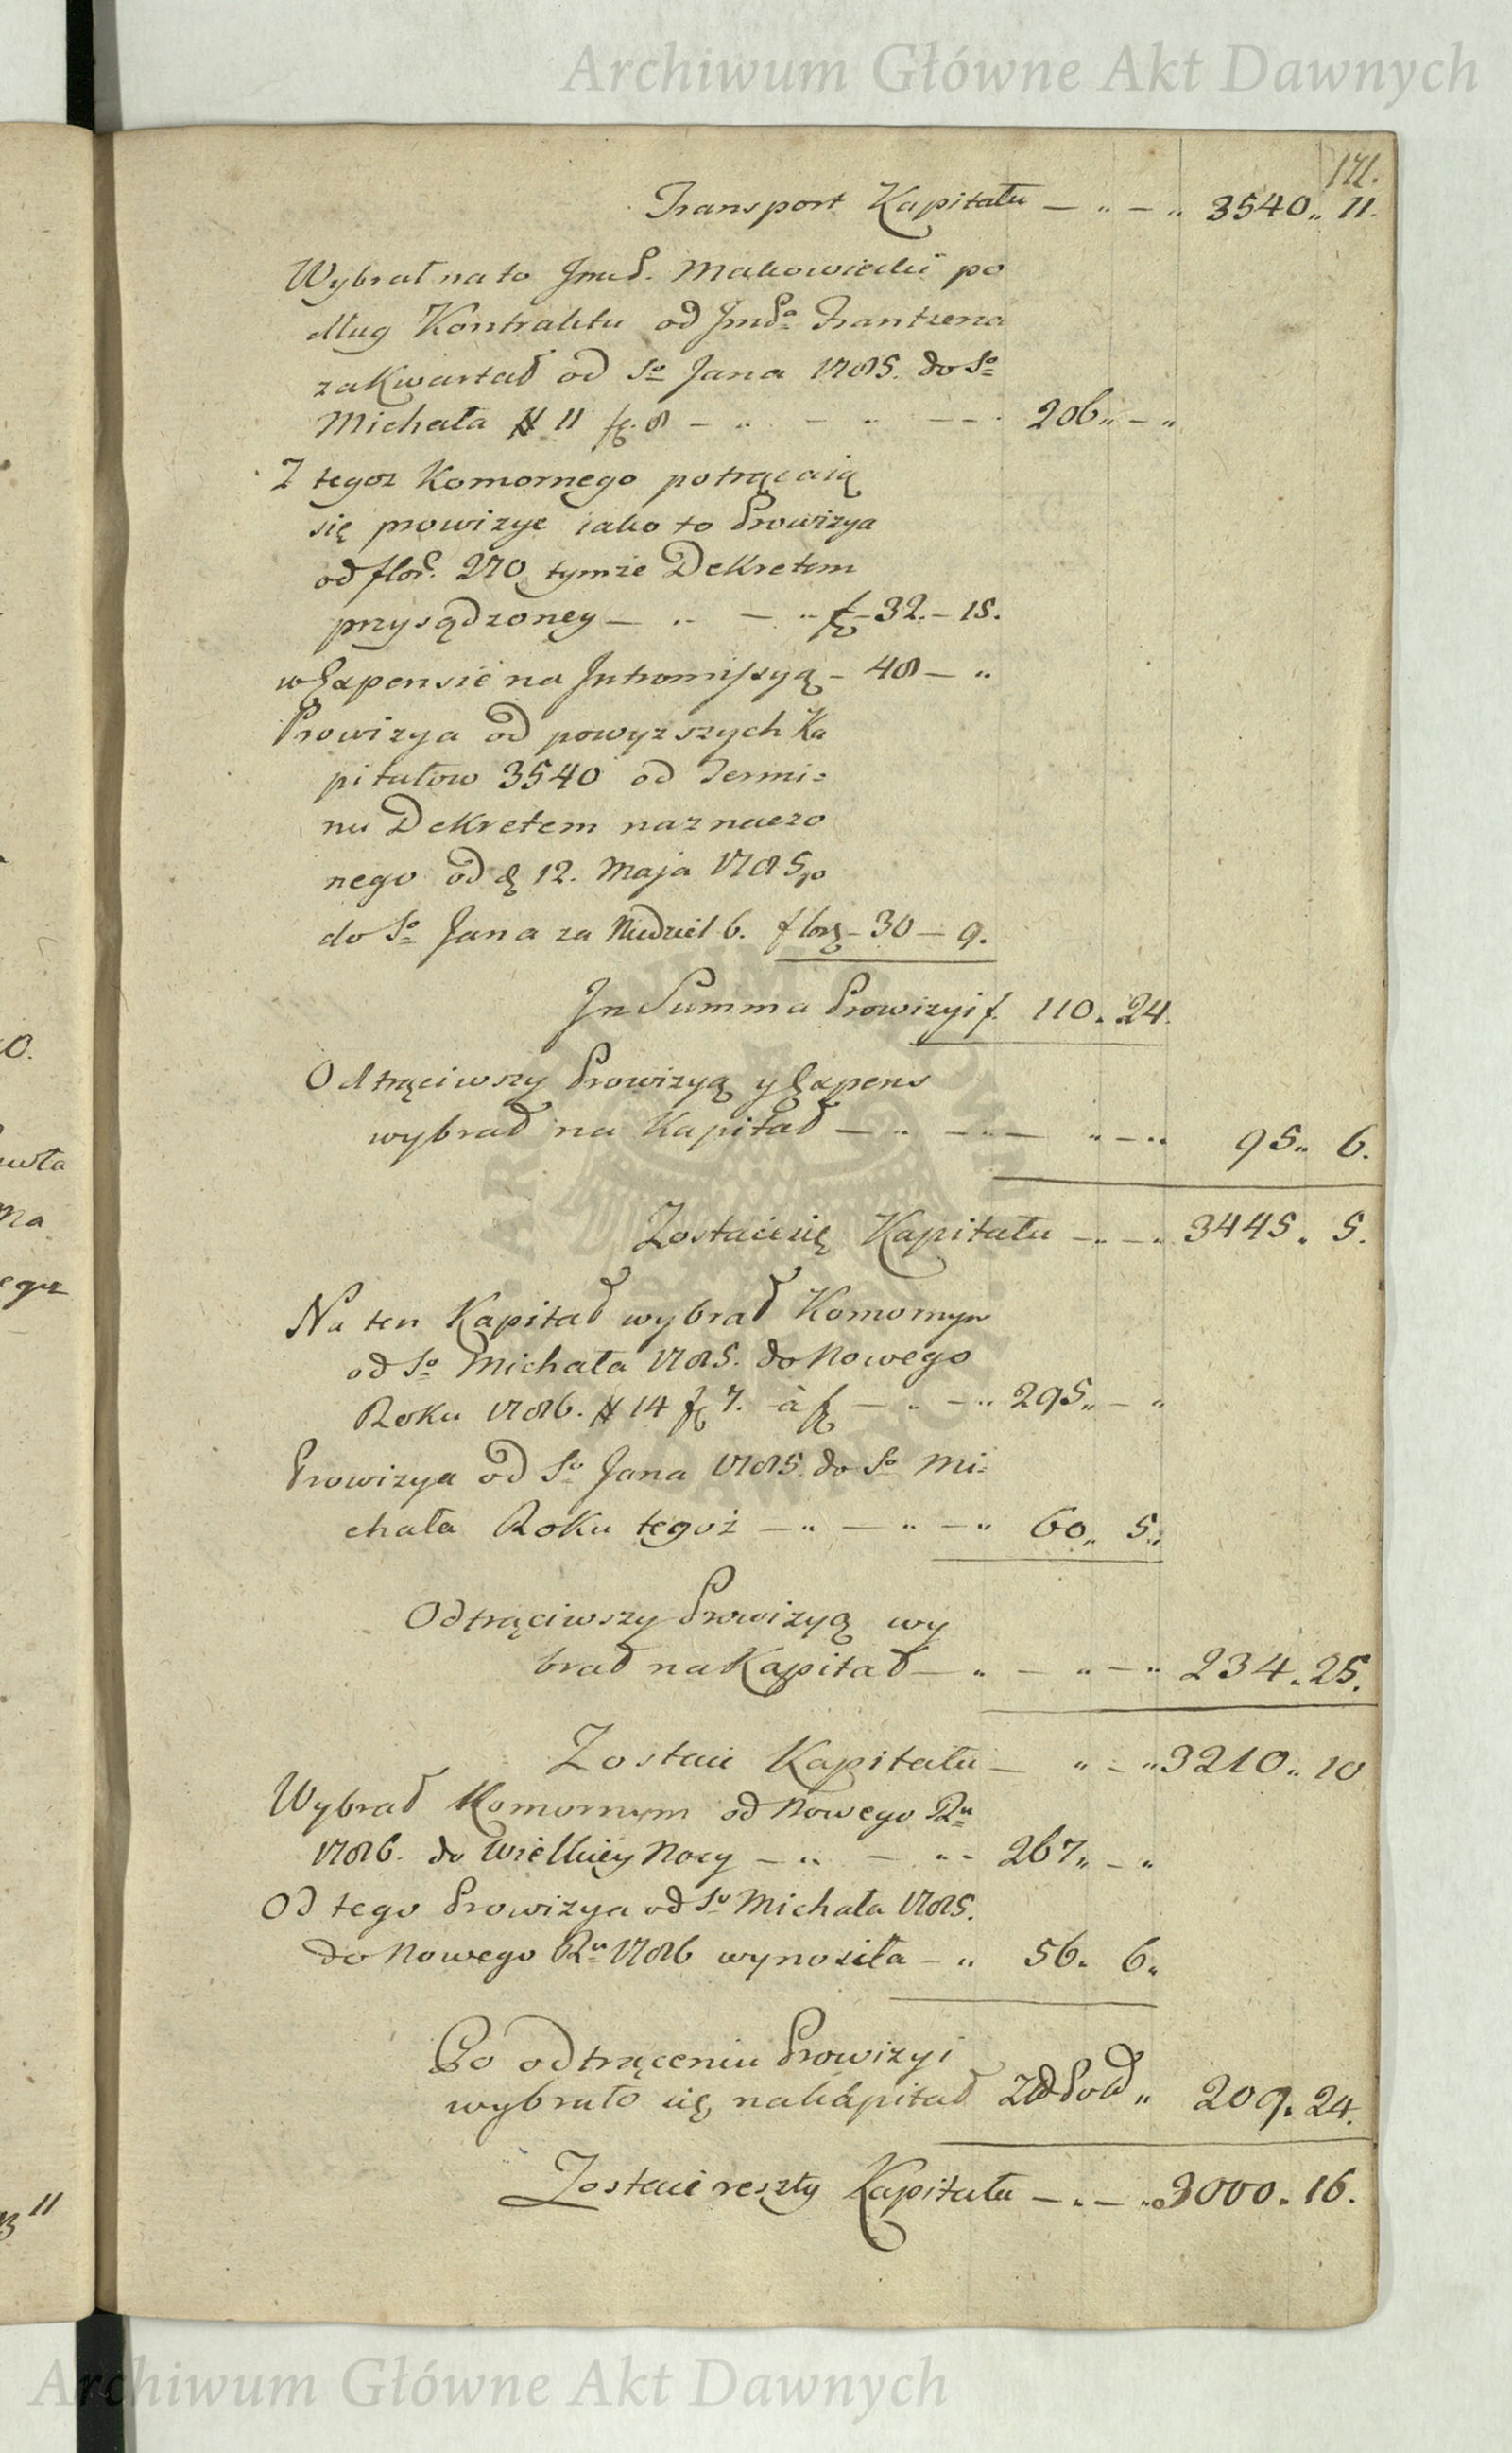 Archiwum Główne Akt Dawnych
171.
Transport Kapitału — „ — „ 3540„ 11.
Wybrał na to Jmć P. Makowiecki po
dług Kontraktu od JmćPa Frantzena
za Kwartał od So Jana 1785. do So
Michała # 11 fl. 8 — „ — „ — — 206„ — „
Z tegoz Komornego potrącaią
się prowizye iako to Prowizya
od flor. 270 tymże Dekretem
przysądzoney — „ — „ fl — 32. — 15.
w Expensie na Intromissyą — 48 — „
Prowizya od powyzszych Ka
pitałow 3540 od Termi=
nu Dekretem naznaczo
nego od d 12. Maja 1785go
do So Jana za Niedziel 6. flor — 30 — 9.
In Summa Prowizyi f. 110. 24.
Odtrąciwszy Prowizyą y Expens
wybrał na Kapitał — „ — „ — „ — „ 95„ 6.
Zostaie się Kapitału — „ — „ 3445. 5.
Na ten Kapitał wybrał Komornym
od So Michała 1785. do Nowego
Roku 1786. # 14 fl 7. à fl — „ — „ 295„ — „
Prowizya od So Jana 1785. do So Mi=
chała Roku tegoż — „ — „ — „ 60„ 5„
Odtrąciwszy Prowizyą wy
brał na Kapitał — „ — „ — „ 234. 25.
Zostaie Kapitału — „ — „ 3210„ 10
Wybrał Komornym od Nowego Ru
1786. do Wielkiey Nocy — „ — „ — 267„ — „
Od tego Prowizya od So Michała 1785.
do Nowego Ru 1786 wynosiła — „ 56. 6„
Po odtrąceniu Prowizyi
wybrało się na Kapitał Zł Pol „ 209. 24.
Zostaie reszty Kapitału — „ — „ 3000. 16.
Archiwum Główne Akt Dawnych